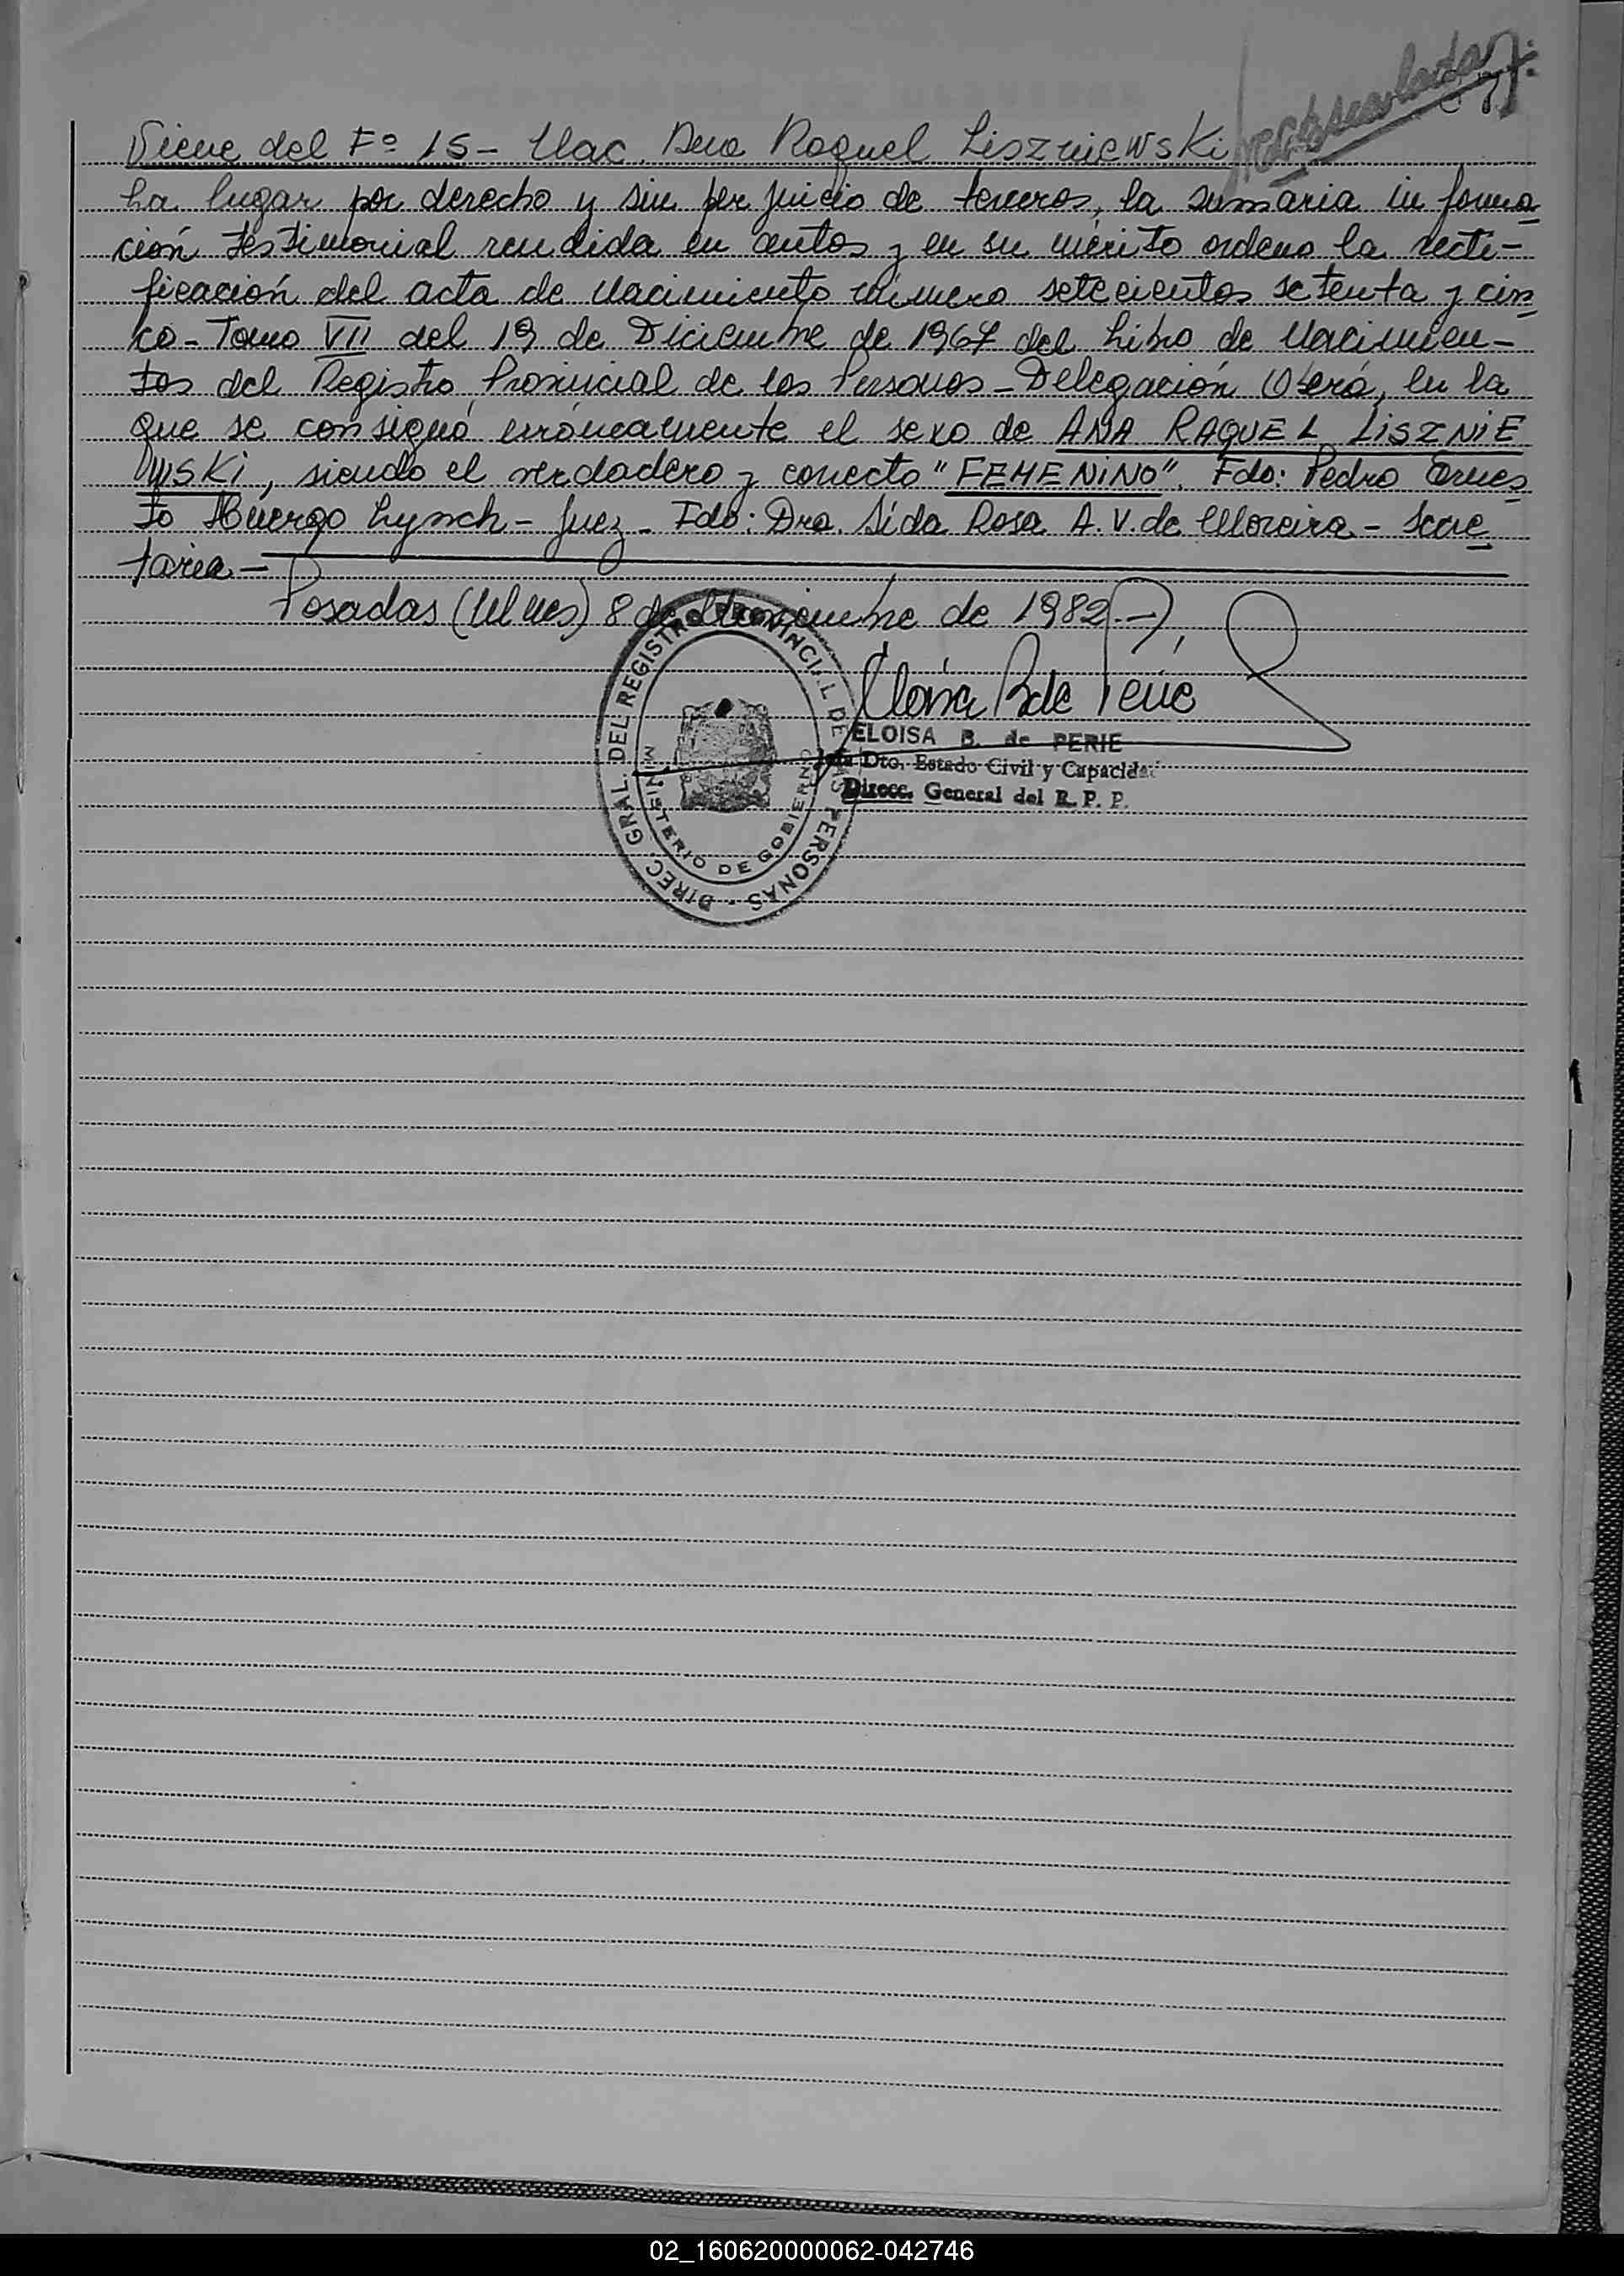 Viene del Fº 15 - Nac. Ana Raquel Liszniewski
ha lugar por derecho y sin perjuicio de terceros, la sumaria informa
ción testimonial rendida en autos y en su mérito ordeno la recti-
ficación del acta de Nacimiento número setecientos setenta y cin
co - Tomo VII del 19 de Diciembre de 1967 del Libro de Nacimien-
tos del Registro Provincial de las Personas - Delegación Oberá, en la
que se consignó erróneamente el sexo de ANA RAQUEL LISZNIE
WSKI, siendo el verdadero y correcto "FEMENINO". Fdo: Pedro Ernes
to Huergo Lynch - Juez - Fdo: Dra. Lida Rosa A. V. de Moreira - Secre
taria -
Posadas (Mnes) 8 de Noviembre de 1982 -
DIREC. GRAL. DEL REGISTRO PROVINCIAL DE LAS PERSONAS -
MINISTERIO DE GOBIERNO
Eloisa B de Perie
ELOISA B. de PERIE
Jefa Dto. Estado Civil y Capacidad
Direcc. General del R. P. P.
02_160620000062-042746